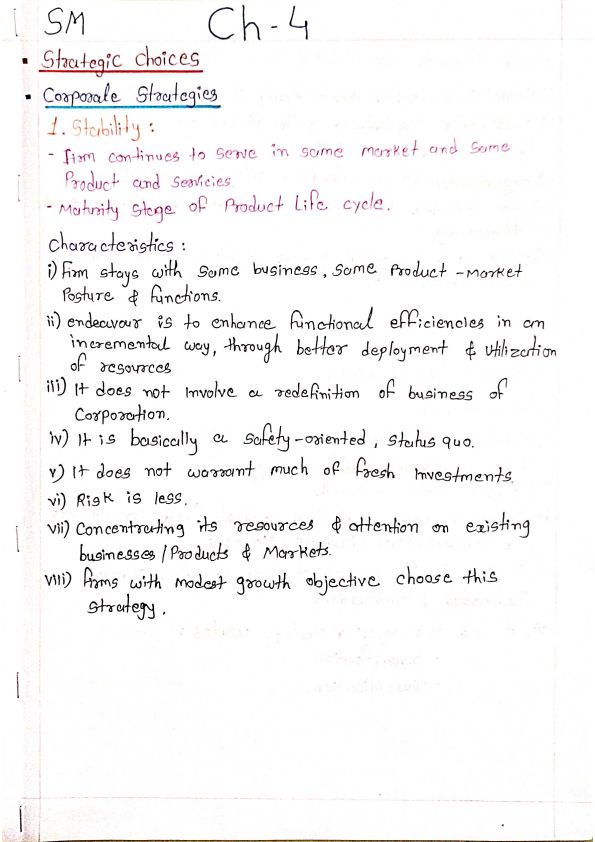 SM Ch-4
Strategic Choices
Corporate Strategies
1. Stability :
- Firm continues to serve in same market and same
Product and Servicies.
- Maturity Stage of Product Life cycle.
Characteristics :
i) Firm stays with same business, same Product - Market
Posture & functions.
ii) endeavour is to enhance functional efficiencies in an
incremental way, through better deployment & utilization
of resources
iii) It does not involve a redefinition of business of
Corporation.
iv) It is basically a safety-oriented, status quo.
v) It does not warrant much of fresh investments.
vi) Risk is less.
vii) Concentrating its resources & attention on existing
businesses/Products & Markets.
viii) firms with modest growth objective choose this
Strategy.